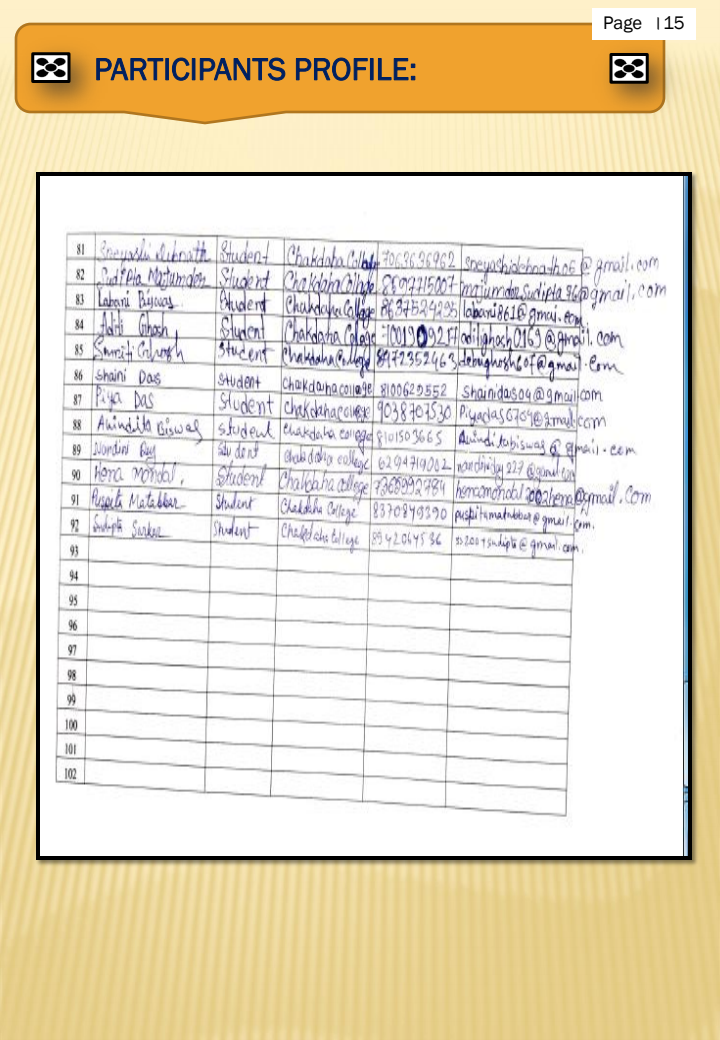 Page 15
PARTICIPANTS PROFILE:
81 Student Chakdaha College 7063636962 @gmail.com
82 Sudipta Majumdar Student Chakdaha College 8697715007 majumdarsudipta96@gmail.com
83 Labani Biswas Student Chakdaha College 8637529295 labani861@gmai.com
84 Aditi Ghosh Student Chakdaha College aditighosh0169@gmail.com
85 Student Chakdaha College 8972352463 @gmail.com
86 Shaini Das Student Chakdaha college 8100629552 shainidas04@gmail.com
87 Piya Das Student Chakdaha college 9038707530 Piyadas6704@gmail.com
88 Anindita Biswas student chakdaha college 8101503665 Aninditabiswas@gmail.com
89 Nandini Student chakdaha college 6294719002
90 Hena Mondal. Student Chakdaha college 7365992784 @gmail.com
91 Puspita Matabbar Student Chakdaha College 8370849390 puspitamatabbar@gmail.com.
92 Sudipta Sarkar Student Chakdaha College 8942064536 @gmail.com.
93
94
95
96
97
98
99
100
101
102